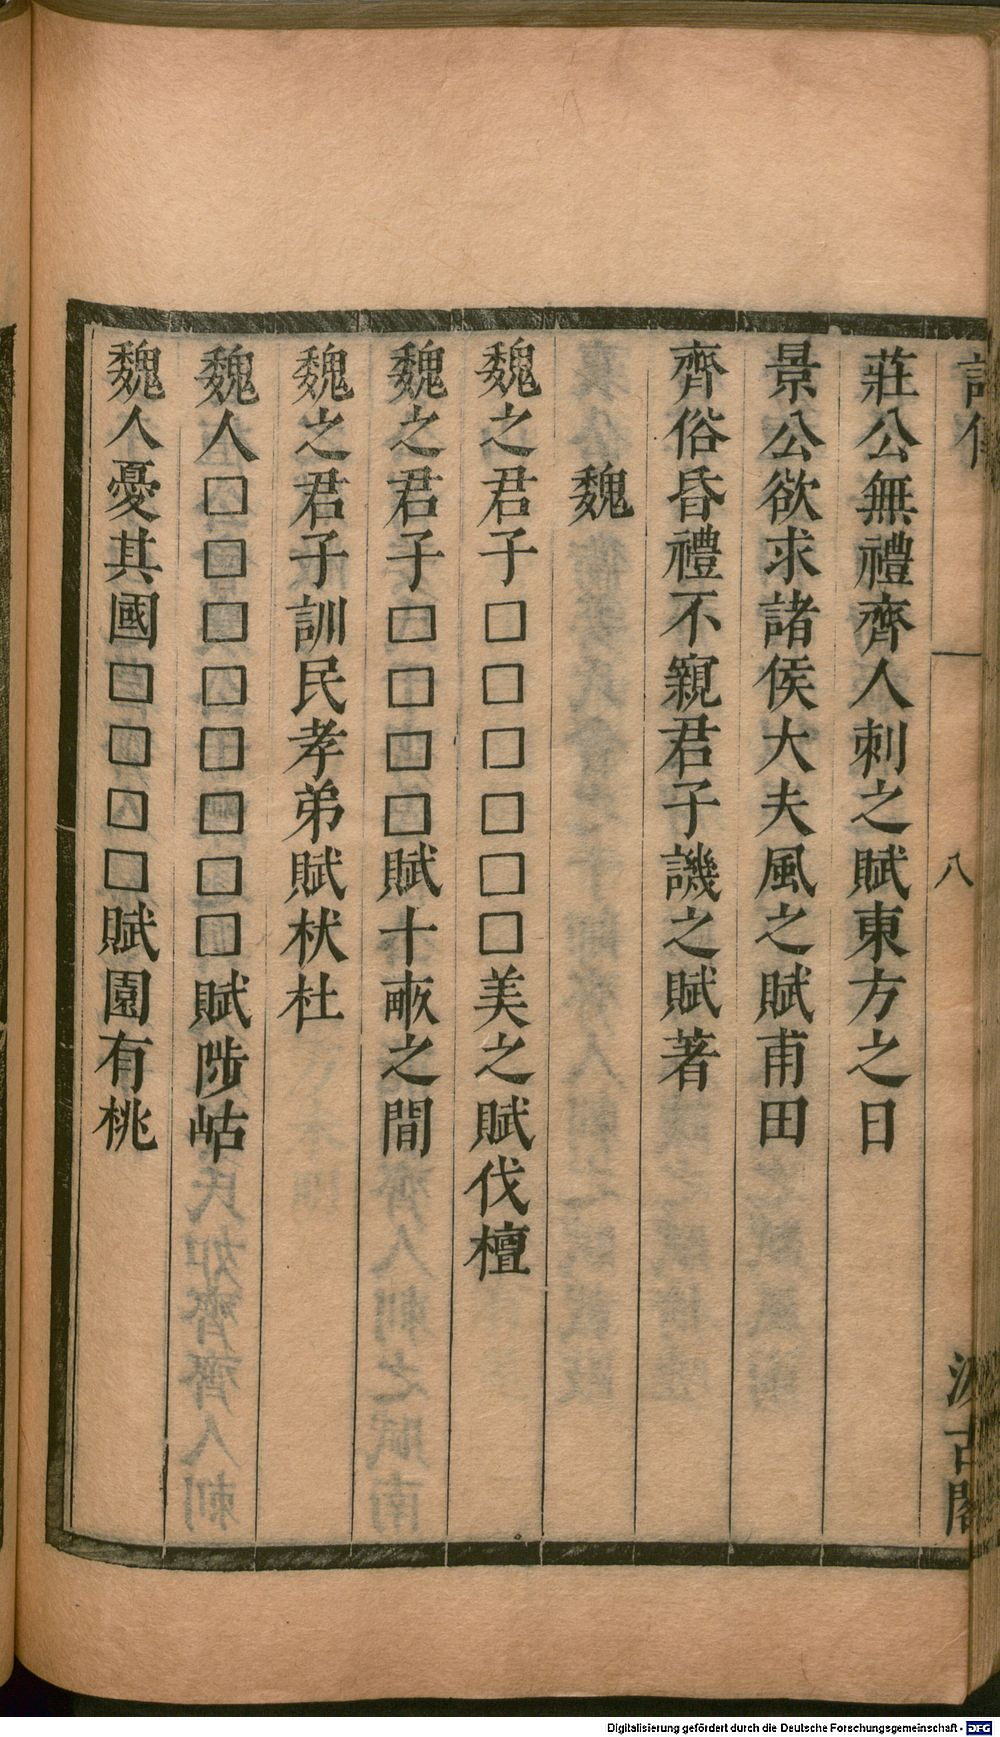 詩傳
八
汲古閣
莊公無禮齊人刺之賦東方之日
景公欲求諸侯大夫風之賦甫田
齊俗昏禮不親君子譏之賦著
魏
魏之君子□□□□□□美之賦伐檀
魏之君子□□□□賦十畝之間
魏之君子訓民孝弟賦杕杜
魏人□□□□□□□□賦陟岵
魏人憂其國□□□□賦園有桃
Digitalisierung gefördert durch die Deutsche Forschungsgemeinschaft - DFG